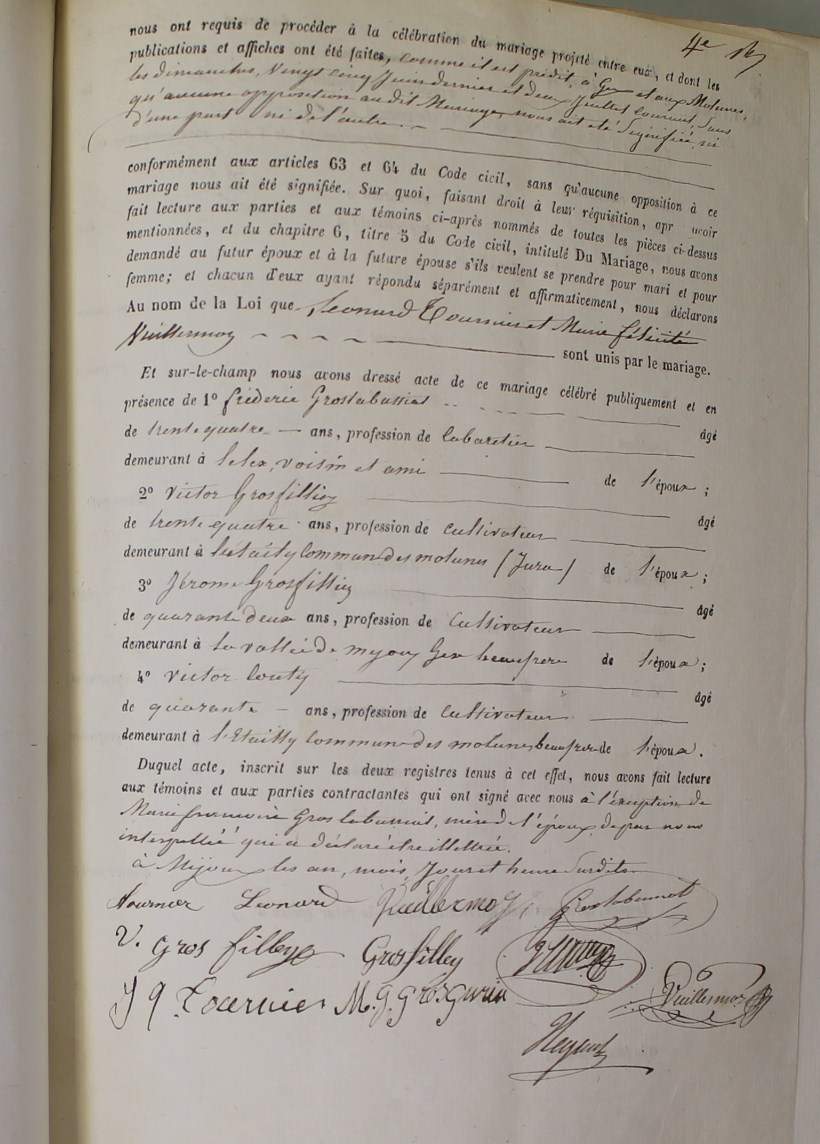 4e
nous ont requis de procéder à la célébration du mariage projeté entre eux, et dont les
publications et affiches ont été faites, comme il est prédit, à Gex et aux Molunes,
les dimanches, Vingt cinq Juin dernier et deux Juillet courant, Sans
qu'aucune opposition au dit Mariage, nous ait été Signifiée, ni
d'une part ni de l'autre.
conformément aux articles 63 et 64 du Code cicil, sans qu'aucune opposition à ce
mariage nous ait été signifiée. Sur quoi, faisant droit à leur réquisition, apr avoir
fait lecture aux parties et aux témoins ci-après nommés de toutes les pièces ci-dessus
mentionnées, et du chapitre 6, titre 5 du Code cicil, intitulé Du Mariage, nous avons
demandé au futur époux et à la future épouse s'ils veulent se prendre pour mari et pour
femme; et chacun d'eux ayant répondu séparément et affirmativement, nous déclarons
Au nom de la Loi que Léonard Tournier et Marie félicité
Vuillermoz sont unis par le mariage.
Et sur-le-champ nous avons dressé acte de ce mariage célébré publiquement et en
présence de 1º frédéric âgé
de trente quatre ans, profession de Cabaretier
demeurant à Lelex, voisin et ami de l'époux;
2º Victor Grosfilley âgé
de trente quatre ans, profession de cultivateur
demeurant à commune des molunes (Jura) de l'époux;
3º Jérome Grosfilley âgé
de quarante deux ans, profession de Cultivateur
demeurant à La vallée de myoux Gex beaufrere de l'époux;
4º Victor âgé
de quarante ans, profession de Cultivateur
demeurant à commune des molunes beaufrere de l'époux.
Duquel acte, inscrit sur les deux registres tenus à cet effet, nous avons fait lecture
aux témoins et aux parties contractantes qui ont signé avec nous à l'exception de
Marie françoise mère de l'époux, de par nous
interpellée qui a déclaré être illettrée.
à Mijoux les an, mois, Jour et heure Susdits
tournier Leonard Vuillermoz Grosbabuset
V. gros filley Grosfilley
Tournier M. J. Grosgurin Vuillermoz